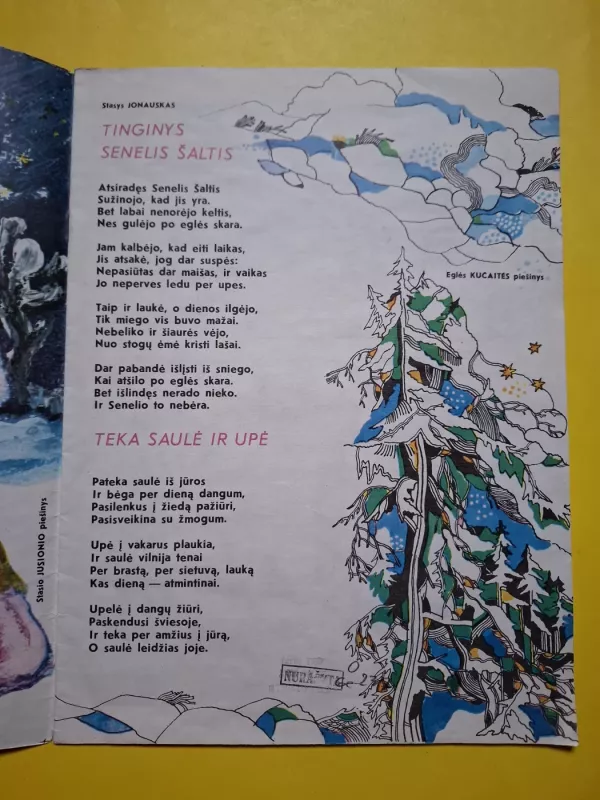 Stasys JONAUSKAS
TINGINYS
SENELIS ŠALTIS
Atsiradęs Senelis Šaltis
Sužinojo, kad jis yra.
Bet labai nenorėjo keltis,
Nes gulėjo po eglės skara.
Jam kalbėjo, kad eiti laikas,
Jis atsakė, jog dar suspės:
Nepasiūtas dar maišas, ir vaikas
Jo neperves ledu per upes.
Taip ir laukė, o dienos ilgėjo,
Tik miego vis buvo mažai.
Nebeliko ir šiaurės vėjo,
Nuo stogų ėmė kristi lašai.
Dar pabandė išlįsti iš sniego,
Kai atšilo po eglės skara.
Bet išlindęs nerado nieko.
Ir Senelio to nebėra.
Eglės KUČAITĖS piešinys
TEKA SAULĖ IR UPĖ
Pateka saulė iš jūros
Ir bėga per dieną dangum,
Pasilenkus į žiedą pažiūri,
Pasisveikina su žmogum.
Upė į vakarus plaukia,
Ir saulė vilnija tenai
Per brastą, per sietuvą, lauką
Kas dieną — atmintinai.
Upelė į dangų žiūri,
Paskendusi šviesoje,
Ir teka per amžius į jūrą,
O saulė leidžias joje.
Stasio JUSIONIO piešinys